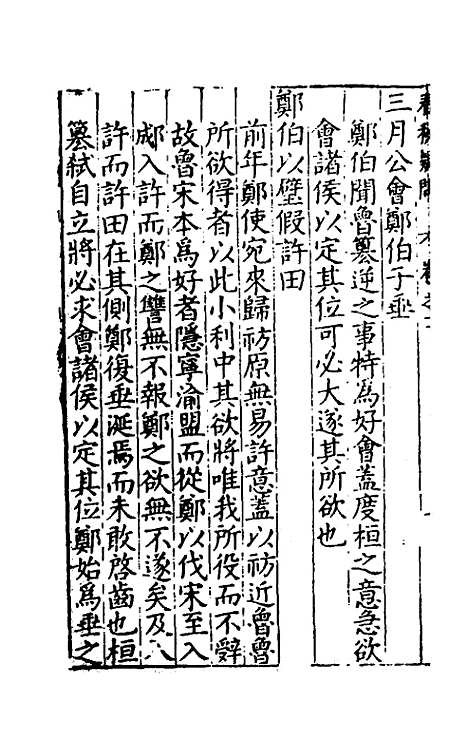 三月公會鄭伯于垂
鄭伯聞魯簒逆之事特為好會蓋度桓之意急欲
會諸侯以定其位可必大遂其所欲也
鄭伯以璧假許田
前年鄭使宛來歸祊原無易許意蓋以祊近魯魯
所欲得者以此小利中其欲將唯我所役而不辭
故魯宋本爲好者隱寧渝盟而從鄭以伐宋至入
郕入許而鄭之讐無不報鄭之欲無不遂矣及入
許而許田在其側鄭復垂涎焉而未敢啓齒也桓
簒弑自立將必求會諸侯以定其位鄭始爲垂之